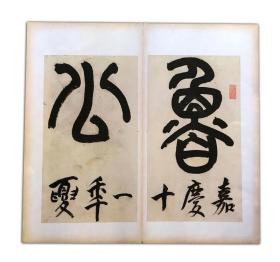 魯公
嘉慶十一秊夏